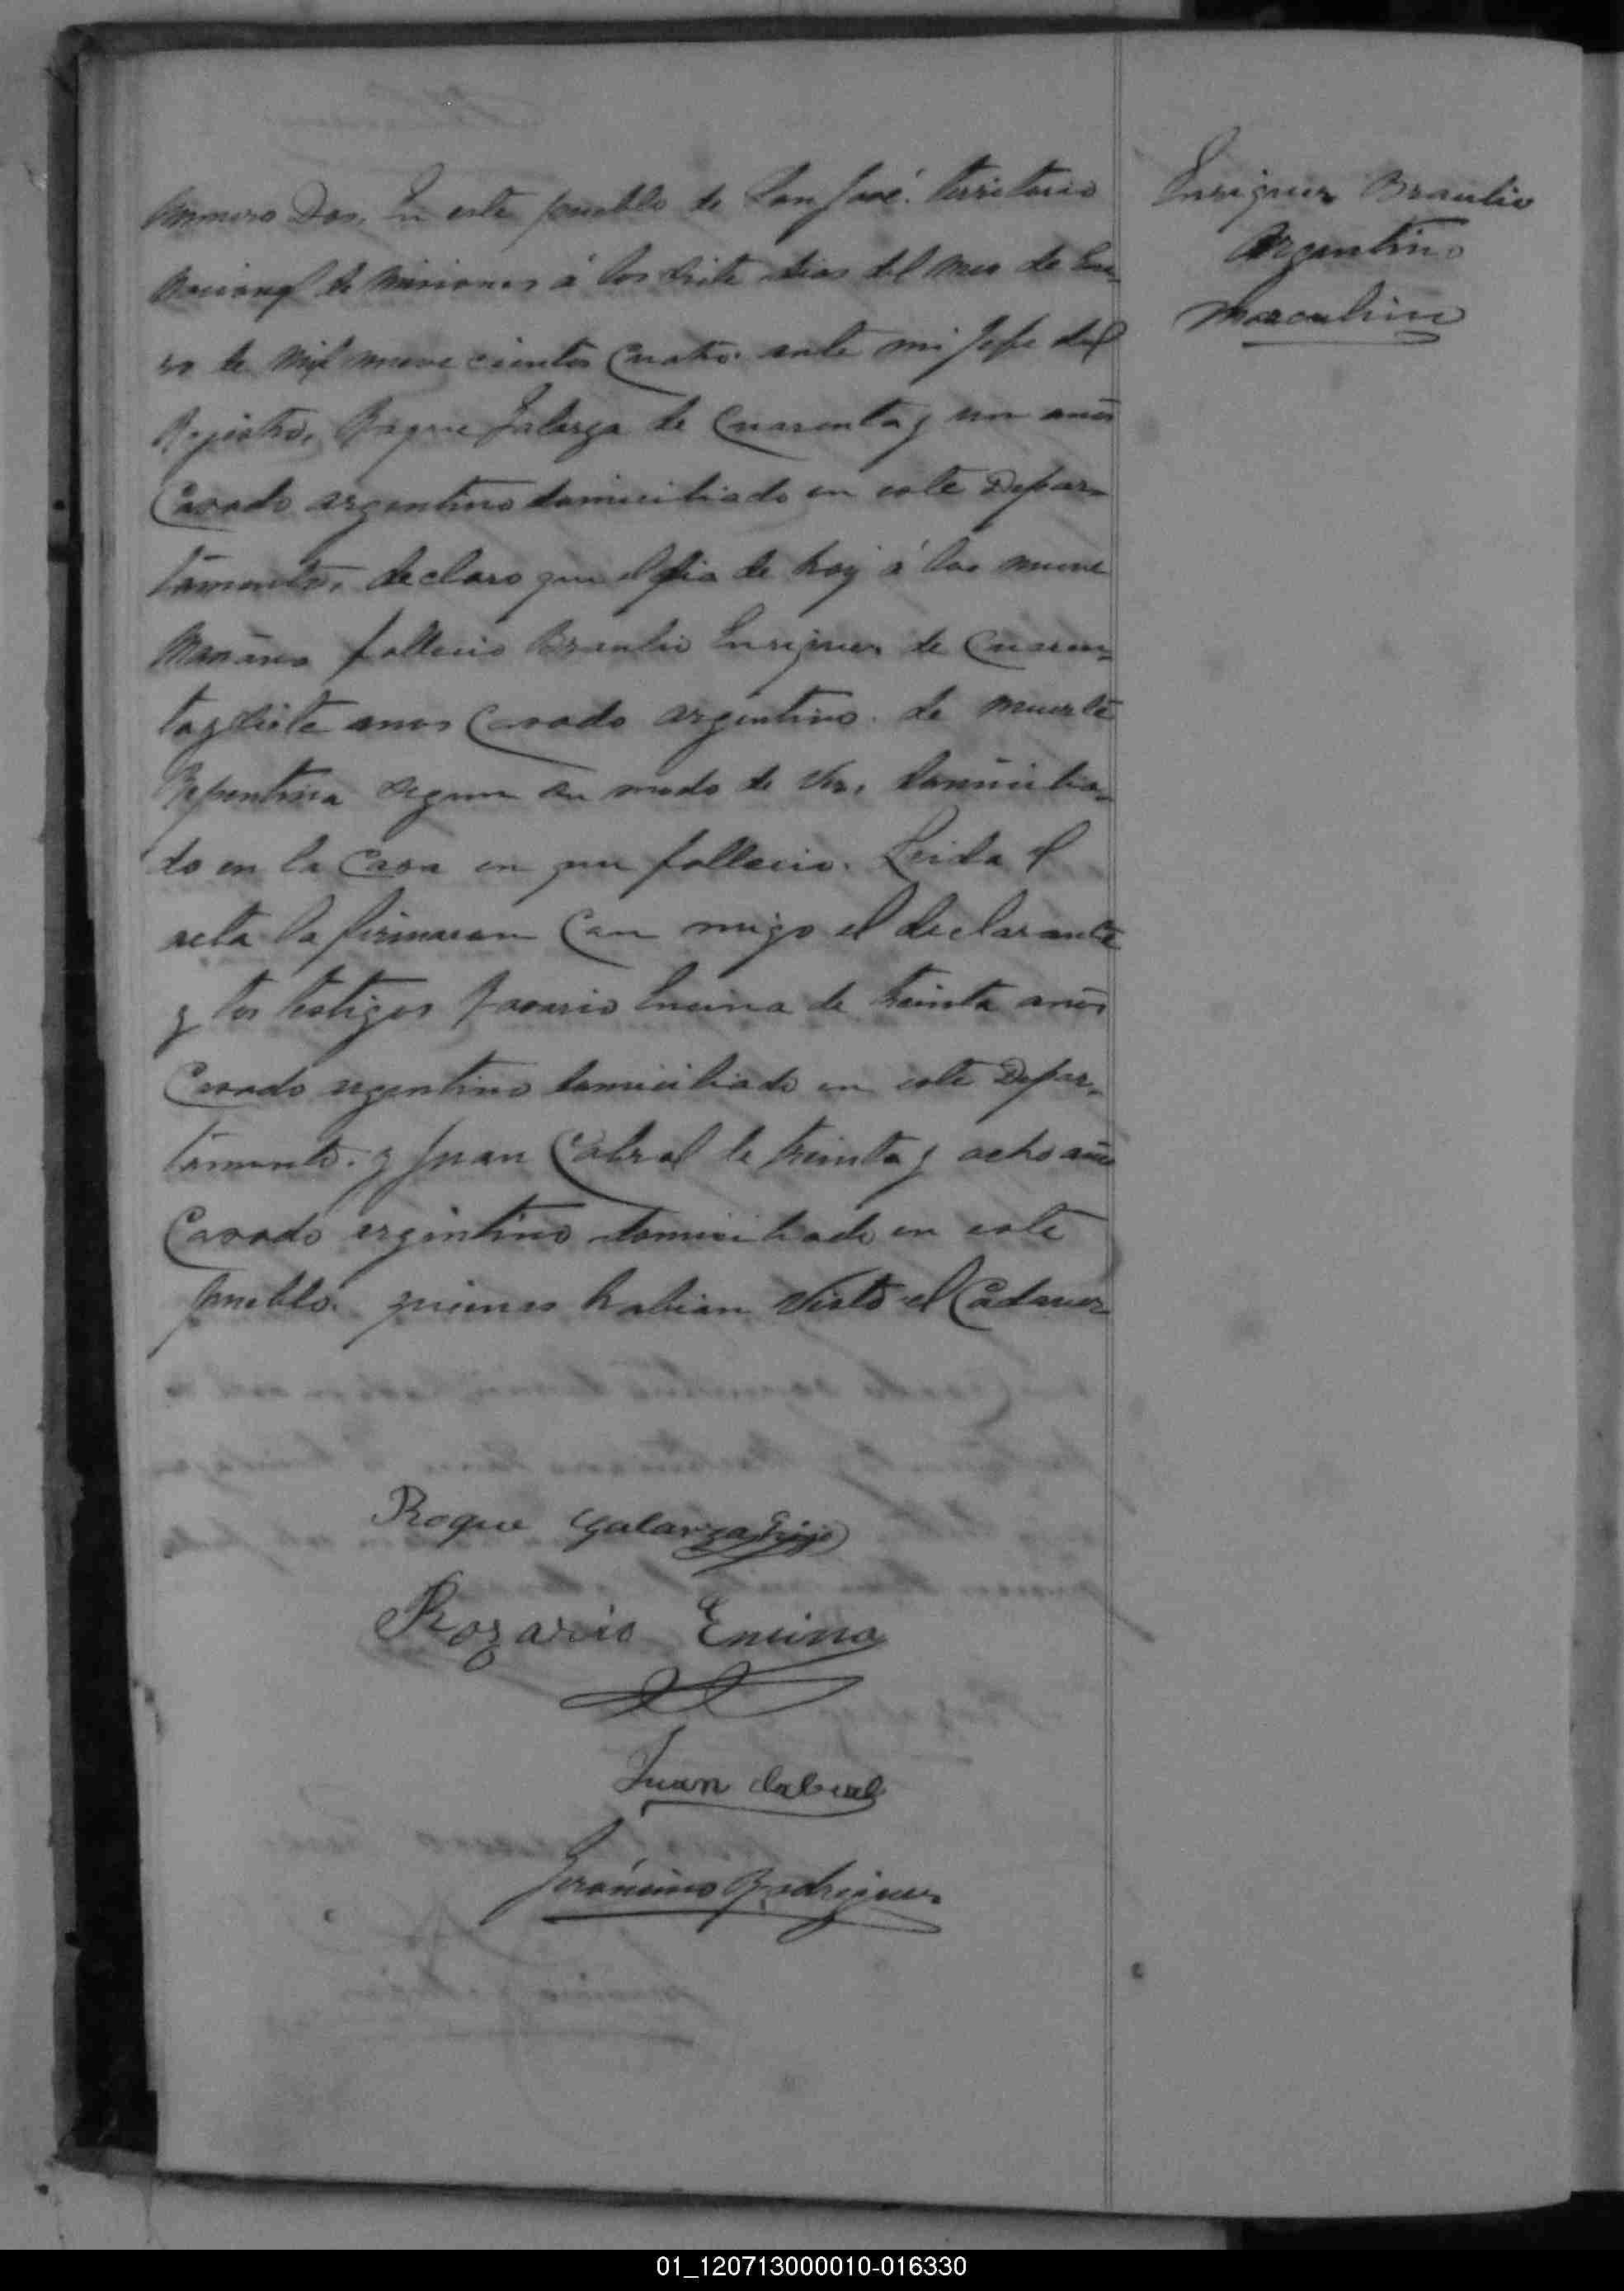 Numero Dos. En este pueblo de San José. territorio
Nacional de Misiones á los siete dias del mes de Ene-
ro de mil nueve cientos Cuatro. ante mi Jefe del
Registro, Roque Galarza de Cuarenta y un años
Casado argentino domiciliado en este Depar-
tamento, declaro que el dia de hoy á las nueve
Mañana fallecio Braulio Enriquez de Cuaren-
ta y siete anos Casado argentino. de muerte
Repentina segun su modo de ver, domicilia-
do en la Casa en que fallecio. Leida el
acta la firmaron Con migo el declarante
y los testigos Rosario Encina de treinta años
Casado argentino domiciliado en este Depar-
tamento. y Juan Cabral de treinta y ocho años
Casado argentino domiciliado en este
pueblo. quienes habian visto el Cadaver
Enriquez Braulio
Argentino
Masculino
Roque Galarza hijo
Rozario Encina
Juan Cabral
Gerónimo Rodriguez
01_120713000010-016330